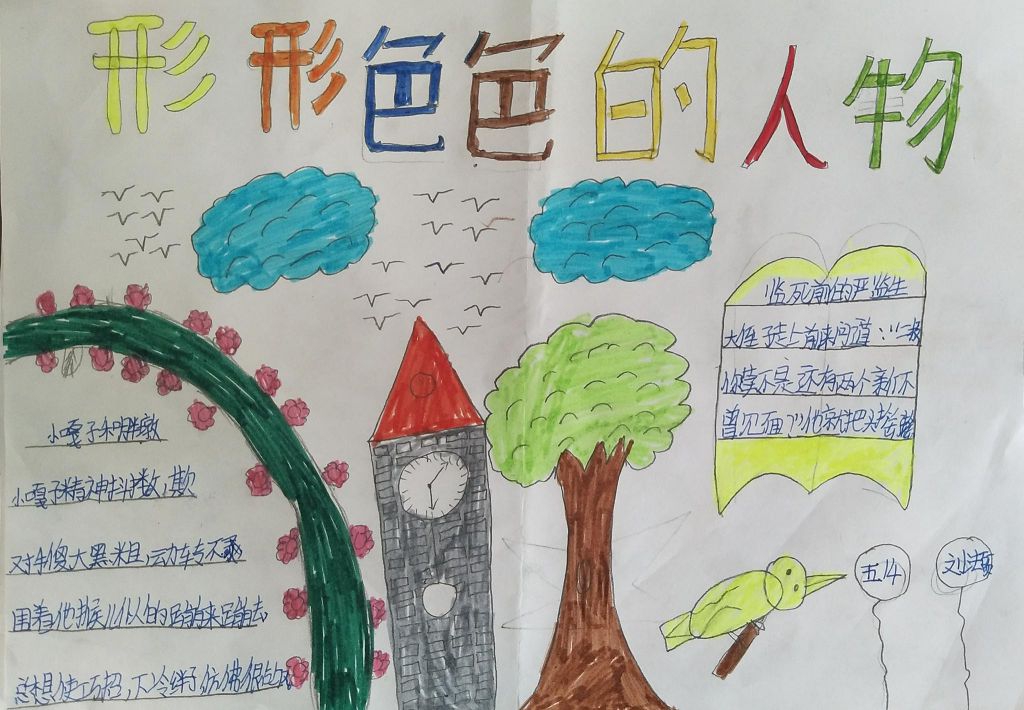 形形色色的人物
临死前的严监生
大侄子走上前来问道："二叔
你莫不是还有两个亲人不
曾见面"他就把头摇
小嘎子和胖墩
小嘎子精神抖擞,欺
对手傻大黑粗,动车专不灵
围着他猴儿似的蹦来蹦去
总想使巧招,下冷绊子仿佛很占
五14
刘